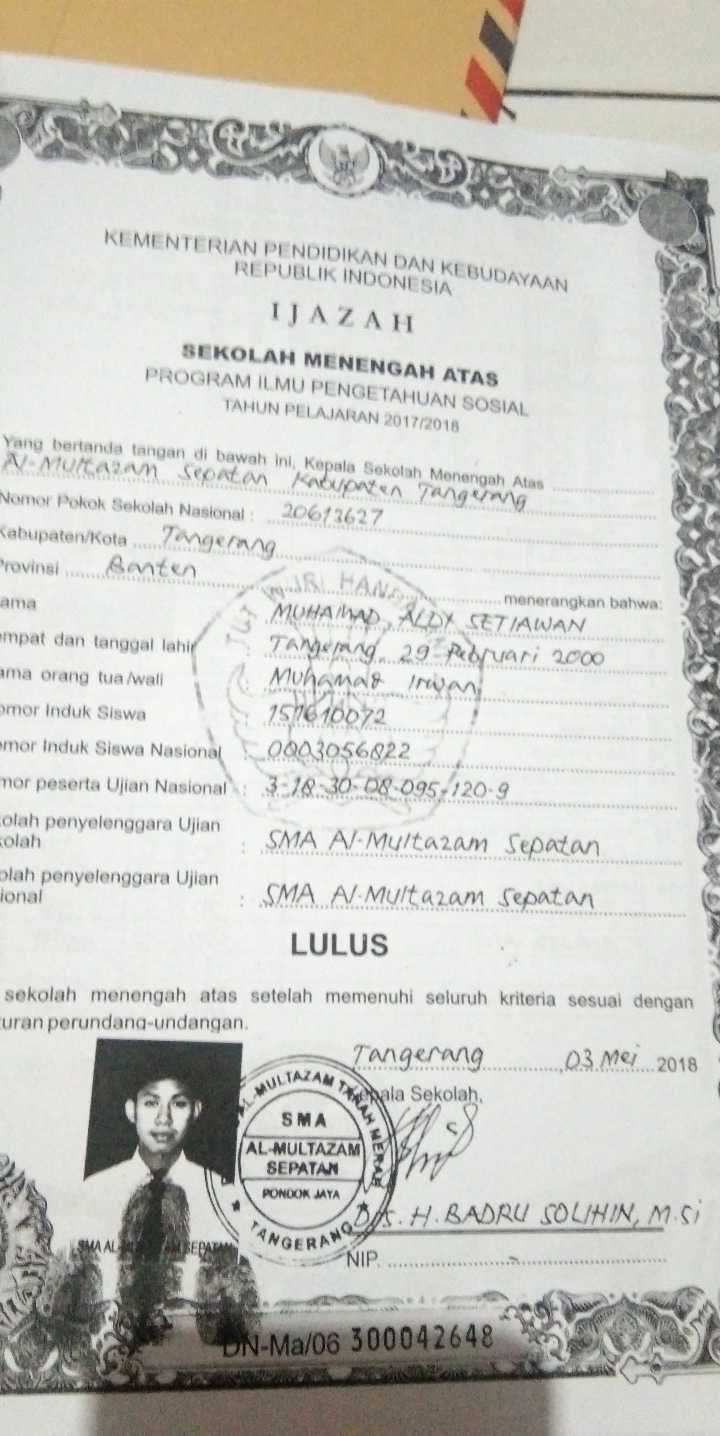 KEMENTERIAN PENDIDIKAN DAN KEBUDAYAAN
REPUBLIK INDONESIA
IJAZAH
SEKOLAH MENENGAH ATAS
PROGRAM ILMU PENGETAHUAN SOSIAL
TAHUN PELAJARAN 2017/2018
Yang bertanda tangan di bawah ini, Kepala Sekolah Menengah Atas
Al-Multazam Sepatan Kabupaten Tangerang
Nomor Pokok Sekolah Nasional : 20613627
Kabupaten/Kota Tangerang
Provinsi Banten
menerangkan bahwa:
ama MUHAMAD ALDY SETIAWAN
empat dan tanggal lahir Tangerang, 29 Februari 2000
ama orang tua/wali : Muhamad Irwan
omor Induk Siswa : 151610072
omor Induk Siswa Nasional : 0003056822
mor peserta Ujian Nasional : 3-18-30-08-095-120-9
olah penyelenggara Ujian
kolah : SMA Al-Multazam Sepatan
olah penyelenggara Ujian
sional : SMA Al-Multazam Sepatan
LULUS
sekolah menengah atas setelah memenuhi seluruh kriteria sesuai dengan
turan perundang-undangan.
Tangerang, 03 Mei 2018
Kepala Sekolah,
AL-MULTAZAM TANAH MERAH
SMA
AL-MULTAZAM
SEPATAN
PONDOK JAYA
TANGERANG
Drs. H. BADRU SOLIHIN, M.Si
NIP.
SMA AL-MULTAZAM SEPATAN
DN-Ma/06 300042648